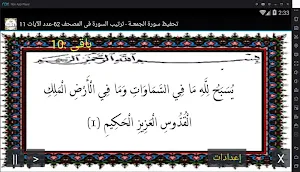 2:33
تحفيظ سورة الجمعة - ترتيب السورة في المصحف 62-عدد الآيات 11
باقي: 10
بسم الله الرحمن الرحيم
يُسَبِّحُ لِلَّهِ مَا فِي السَّمَاوَاتِ وَمَا فِي الْأَرْضِ الْمَلِكِ
الْقُدُّوسِ الْعَزِيزِ الْحَكِيمِ (1)
|| > إعدادات X